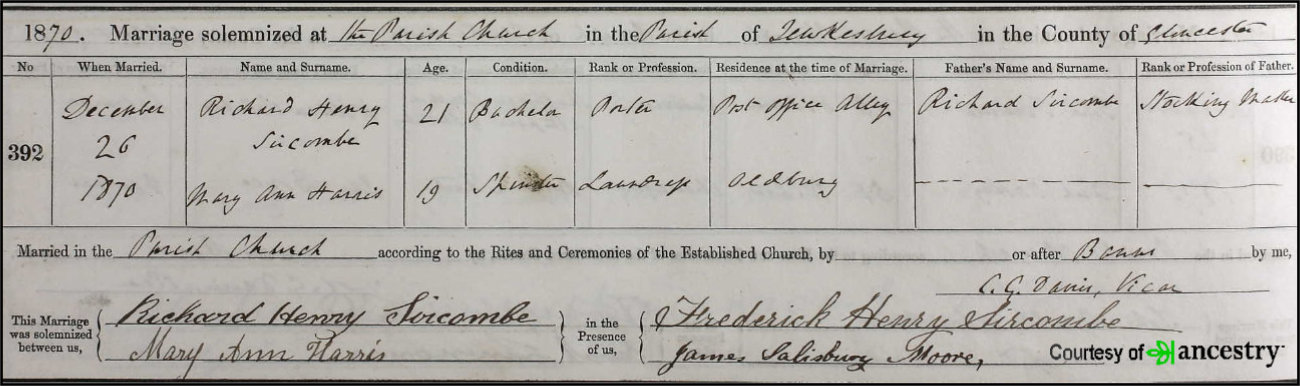 1870. Marriage solemnized at the Parish Church in the Parish of Tewkesbury in the County of Gloucester
No When Married. Name and Surname. Age. Condition. Rank or Profession. Residence at the time of Marriage. Father's Name and Surname. Rank or Profession of Father.
December Richard Henry 21 Bachelor Porter Post Office Alley Richard Sircombe Stocking Maker
392 26 Sircombe
1870 Mary Ann Harris 19 Spinster Laundress Oldbury
Married in the Parish Church according to the Rites and Ceremonies of the Established Church, by or after Banns by me,
C. G. Davies, Vicar
This Marriage was solemnized between us, Richard Henry Sircombe in the Presence of us, Frederick Henry Sircombe
Mary Ann Harris James Salisbury Moore,
Courtesy of ancestry